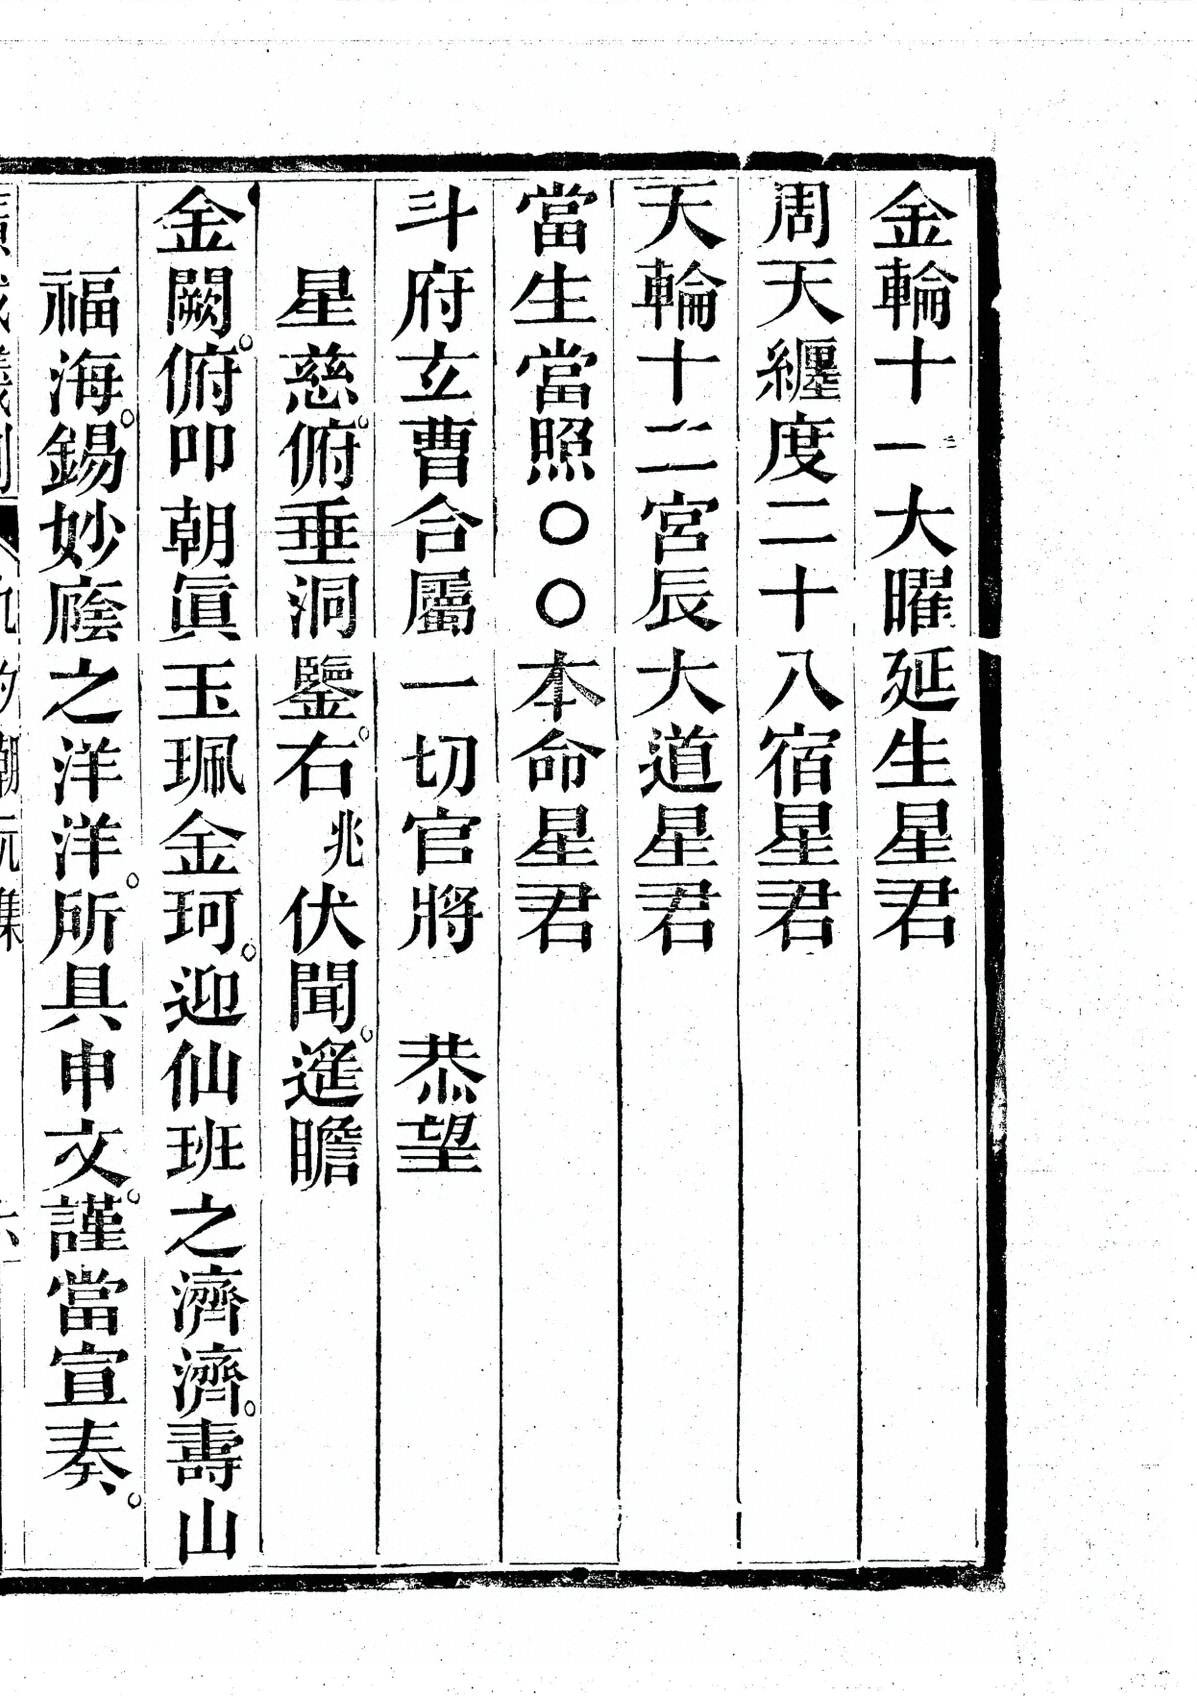 金輪十一大曜延生星君
周天纏度二十八宿星君
天輪十二宮辰大道星君
當生當照〇〇本命星君
斗府玄曹合屬一切官將　恭望
星慈。俯垂洞鑒。右兆伏聞。遥瞻
金闕。俯叩朝眞玉珮金珂。迎仙班之濟濟。壽山
福海。錫妙廕之洋洋。所具申文。謹當宣奏。